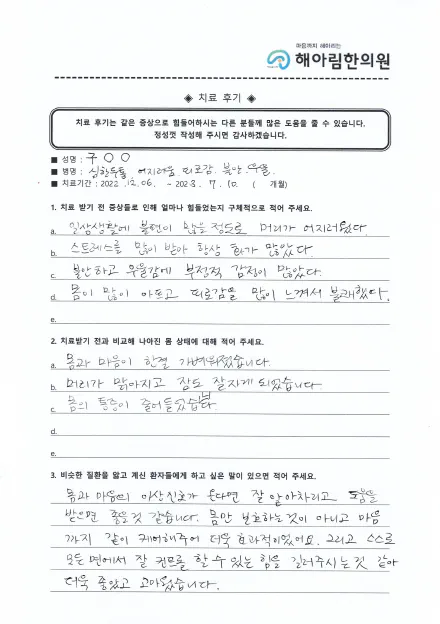 마음까지 헤아리는
해아림한의원
◈ 치료 후기 ◈
치료 후기는 같은 증상으로 힘들어하시는 다른 분들께 많은 도움을 줄 수 있습니다.
정성껏 작성해 주시면 감사하겠습니다.
■ 성명 : 구 ○ ○
■ 병명 : 심한두통, 어지러움, 피로감, 불안, 우울.
■ 치료기간 : 2022. 12. 06. ~ 2023. 7. 10. ( 개월)
1. 치료 받기 전 증상들로 인해 얼마나 힘들었는지 구체적으로 적어 주세요.
a. 일상생활에 불편이 있을 정도로 머리가 어지러웠다.
b. 스트레스를 많이 받아 항상 화가 많았다.
c. 불안하고 우울감에 부정적 감정이 많았다.
d. 몸이 많이 아프고 피로감을 많이 느껴서 불쾌했다.
e.
2. 치료받기 전과 비교해 나아진 몸 상태에 대해 적어 주세요.
a. 몸과 마음이 한결 가벼워졌습니다.
b. 머리가 맑아지고 잠도 잘자게 되었습니다.
c. 몸의 통증이 줄어들었습니다.
d.
e.
3. 비슷한 질환을 앓고 계신 환자들에게 하고 싶은 말이 있으면 적어 주세요.
몸과 마음의 이상신호가 온다면 잘 알아차리고 도움을
받으면 좋을것 같습니다. 몸만 보호하는것이 아니고 마음
까지 같이 케어해주어 더욱 효과적이었어요. 그리고 스스로
모든 면에서 잘 컨트롤 할 수 있는 힘을 길러주시는것 같아
더욱 좋았고 고마웠습니다.